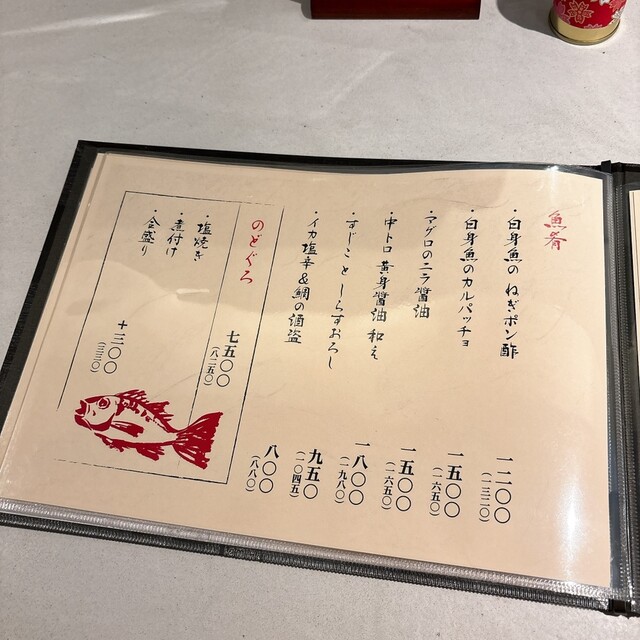 魚肴
・白身魚の ねぎポン酢
一二〇〇
(一三二〇)
・白身魚のカルパッチョ
一五〇〇
(一六五〇)
・マグロのニラ醤油
一五〇〇
(一六五〇)
・中トロ 黄身醤油 和え
一八〇〇
(一九八〇)
・すじことしらすおろし
九五〇
(一〇四五)
・イカ塩辛&鯛の酒盗
八〇〇
(八八〇)
のどぐろ
七五〇〇
(八二五〇)
・塩焼き
・煮付け
・合盛り
+三〇〇
(三三〇)